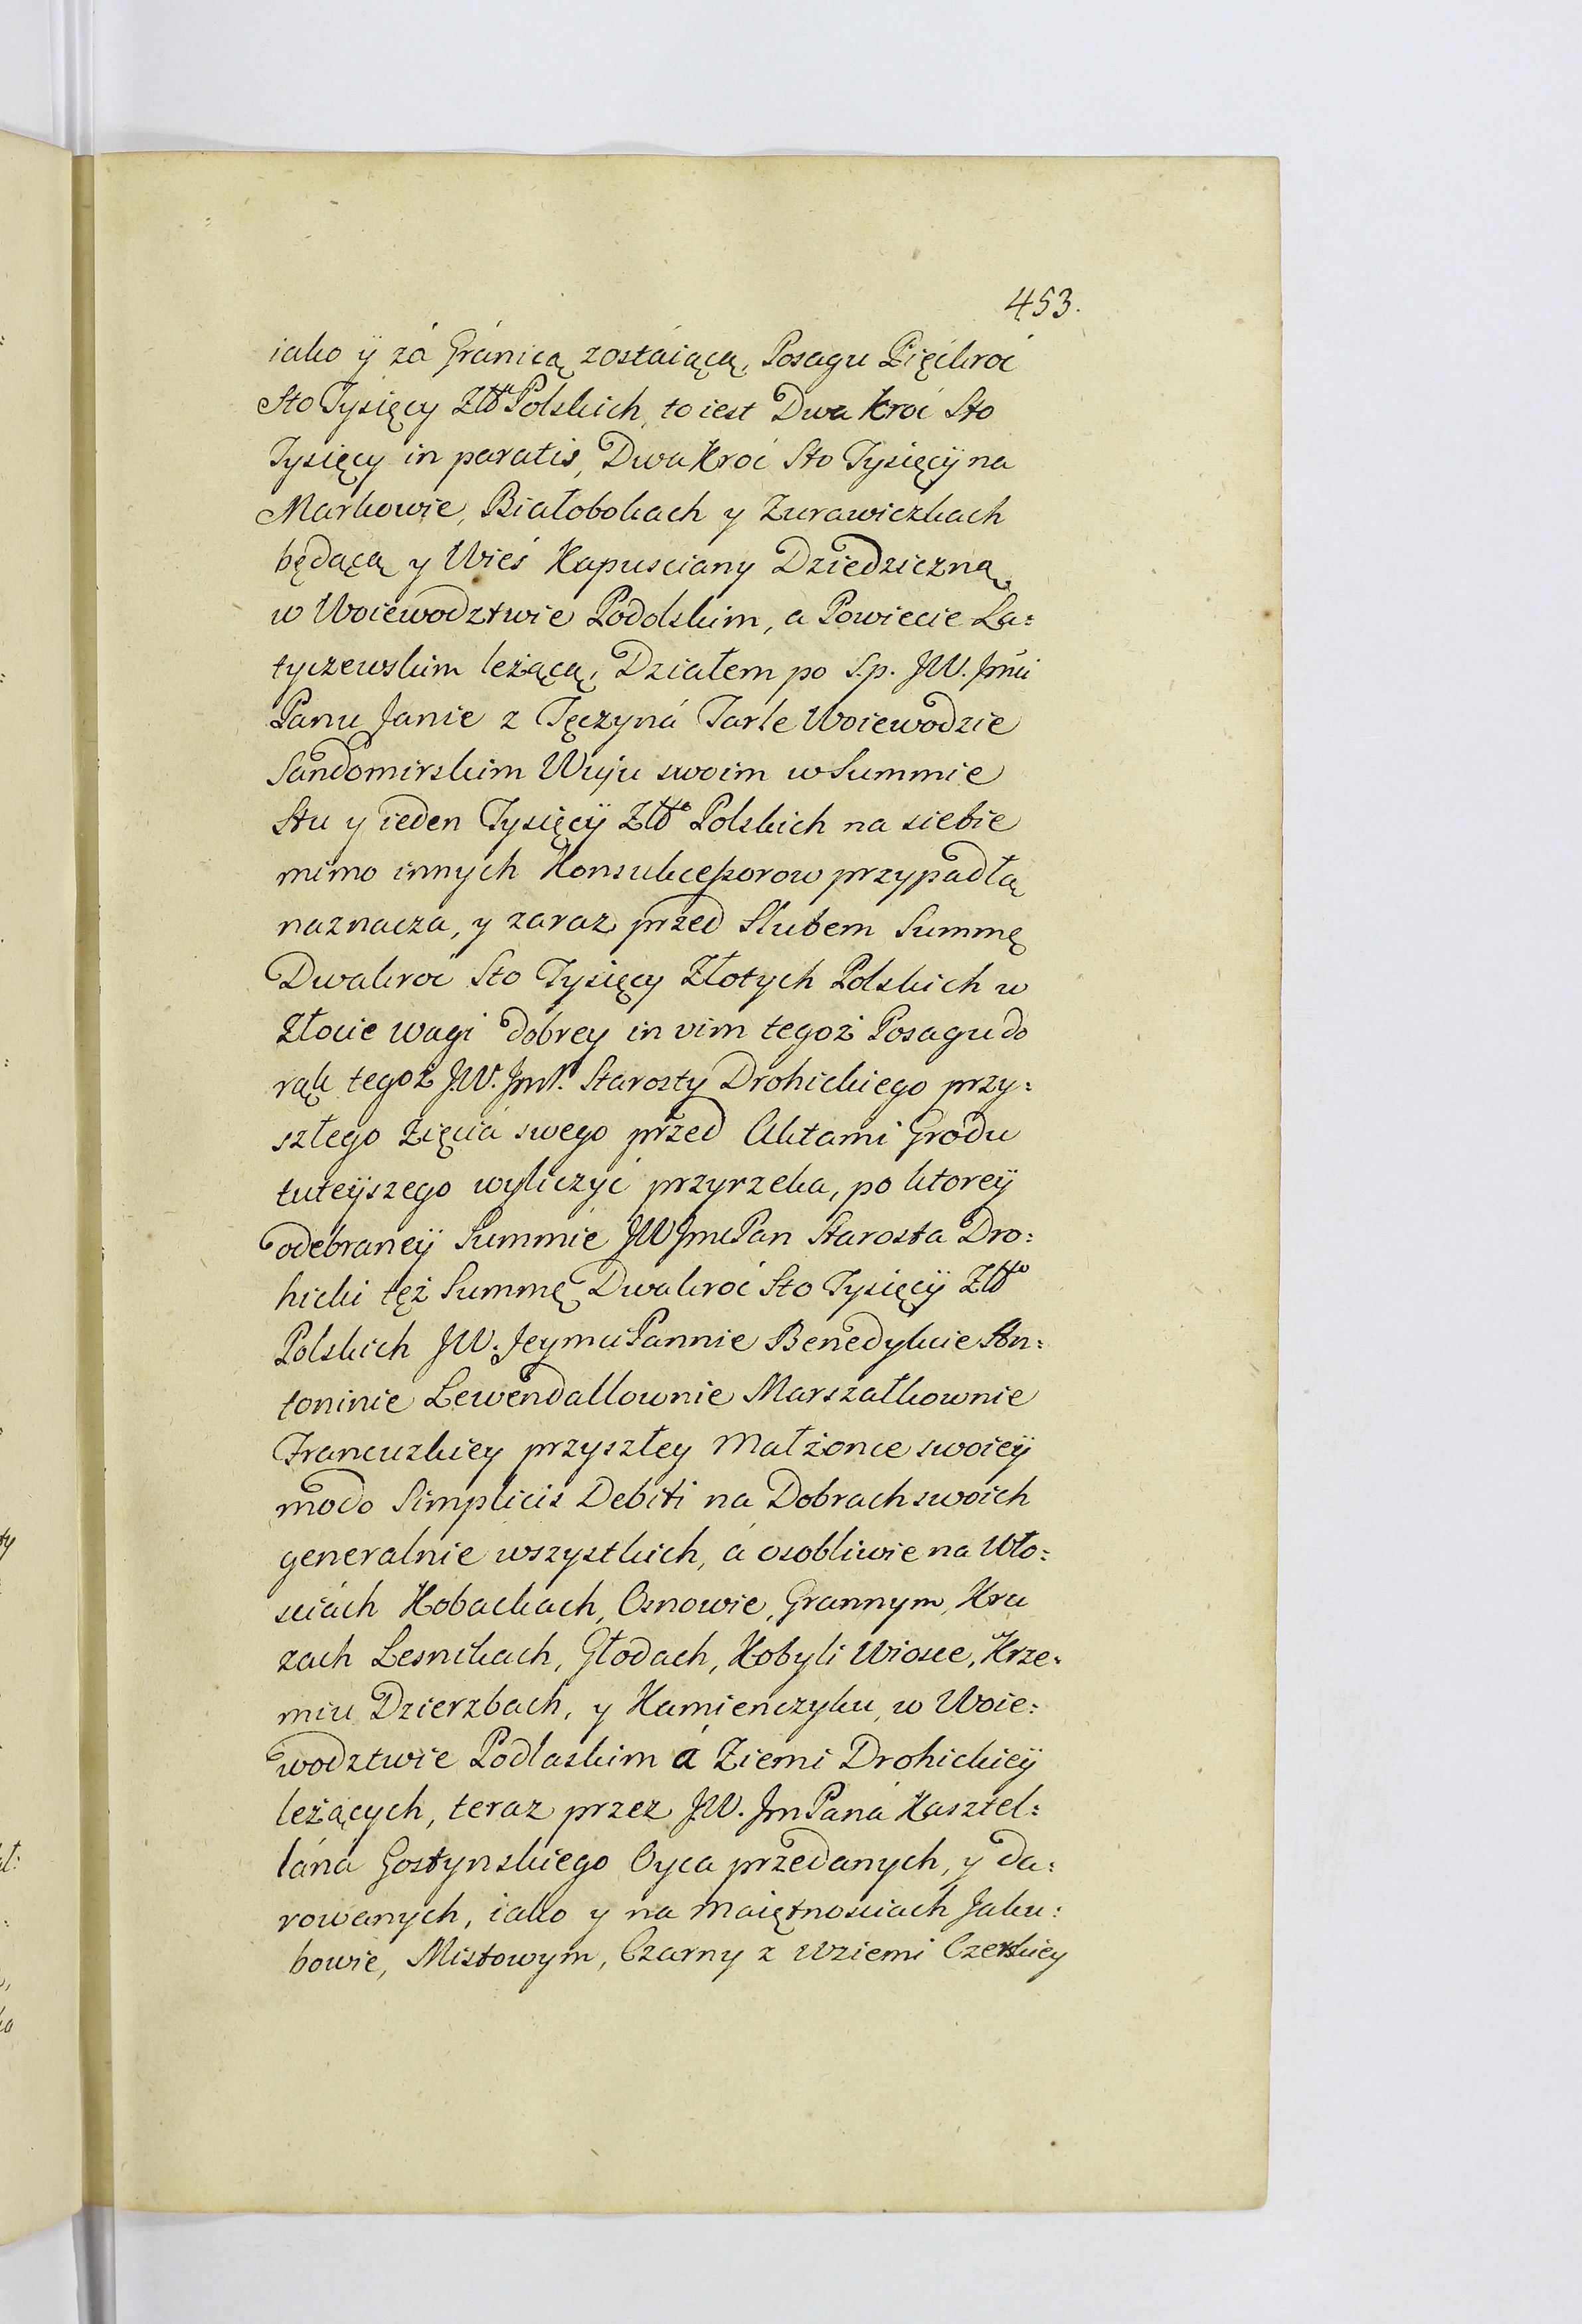 453.
iako ÿ zá Gránicą zostáiącą, Posagu Pięćkroć
Sto Tysięcy Złł Polskich, to iest Dwa kroć Sto
Tysięcy in paratis, Dwa kroć Sto Tysięcÿ na
Markowie, Białobokach y Zurawiczkach
będącą y Wieś Kapusciany Dziedziczną
w Woiewodztwie Podolskim, a Powiecie La=
tyczewskim leżącą, Działem po S.p. JW. Jmći
Panu Janie z Tęczyná Tarle Woiewodzie
Sandomirskim Wuju swoim w Summie
Stu y ieden Tysięcÿ Złł Polskich na siebie
mimo innych Konsukcessorow przypadłą
naznacza, y zaraz przed Slubem Summę
Dwakroć Sto Tysięcy Złotych Polskich w
Złocie wagi dobrey in vim tegoż Posagu do
rąk tegoż J.W. Jmć. Starosty Drohickiego przy=
szłego Zięciá swego przed Aktami Grodu
tuteÿszego wyliczyć przyrzeka, po ktoreÿ
odebraneÿ Summie JW Jmć Pan Starosta Dro=
hicki tęż Summę Dwakroć Sto Tysięcÿ Złł
Polskich J.W. Jeymci Pannie Benedykcie An=
toninie Lewendallownie Marszałkownie
Francuzkiey przyszłey Małżonce swoieÿ
modo Simplicis Debiti na Dobrach swoich
generalnie wszystkich, á osobliwie na Wło=
sciách Kobackach, Osnowie, Grannym, Kru
zach Lesnikach, Głodach, Kobyli Wiosce, Krze=
miu Dzierzbach, y Kamienczyku, w Woie=
wodztwie Podlaskim á Ziemi Drohickieÿ
leżących, teraz przez J.W. Jm Paná Kasztel=
láná Gostynskiego Oyca przedanych, y da=
rowanych, iako y na Maiętnosciach Jaku=
bowie, Mistowym, Czarny z w ziemi Czerskiey